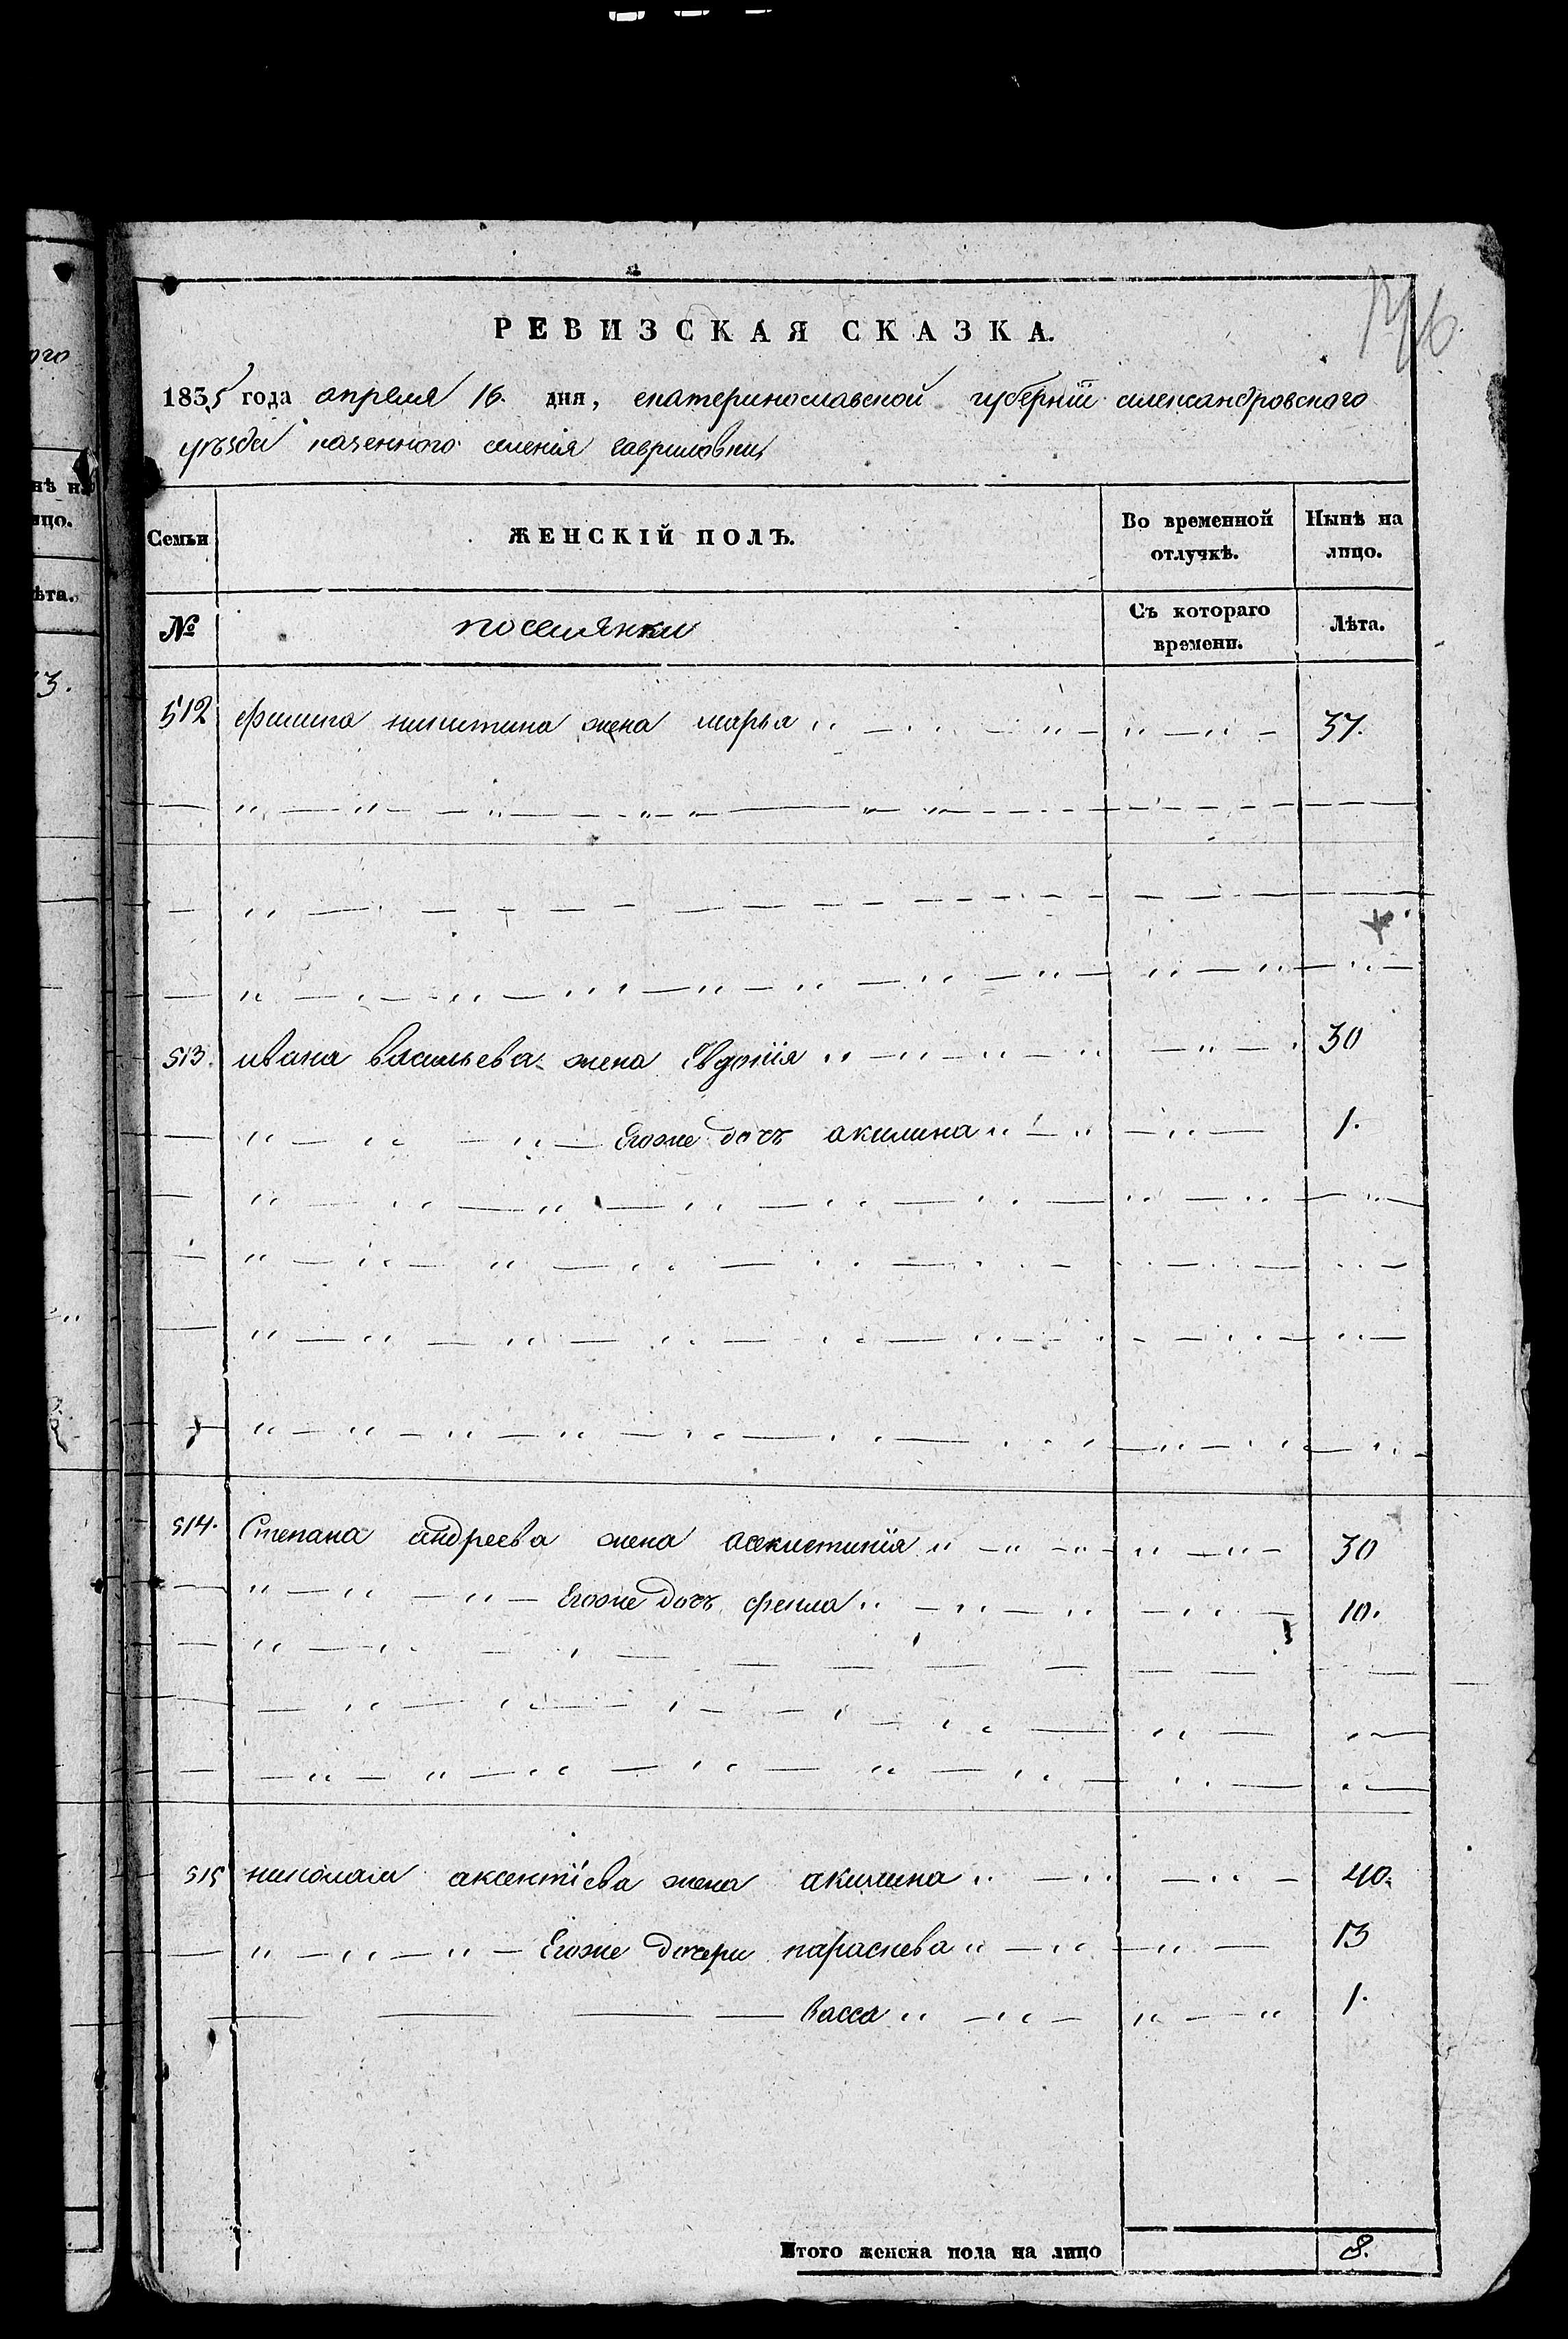 РЕВИЗСКАЯ СКАЗКА.
1835 года апреля 16. дня, екатеринославской губернїи александровского
уѣзда казенного селенїя гавриловки
Семьи ЖЕНСКІЙ ПОЛЪ. Во временной отлучкѣ. Нынѣ на лицо.
№ поселянки Съ котораго времени. Лѣта.
512 никитина жена марья 37.
513. ивана васильева жена Евдокїя 30
Егоже дочь акилина 1.
514. Степана андреева жена 30
Егоже дочь фекла 10.
515 николая аксентїева жена акилина 40.
Егоже дочери параскева 13
васса 1.
Итого женска пола на лицо 8.